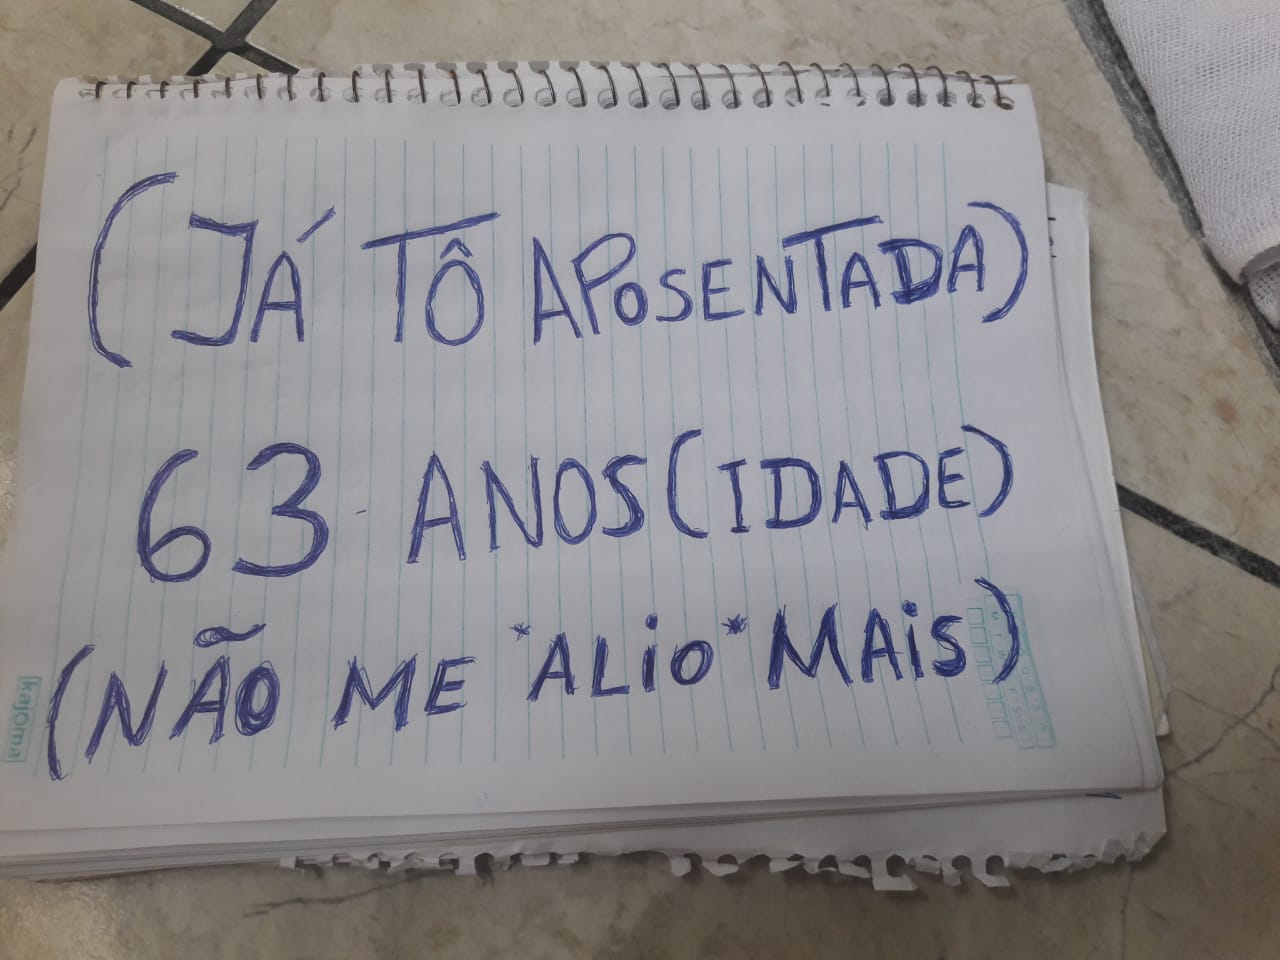 (JÁ TÔ APOSENTADA)
63 ANOS (IDADE)
(NÃO ME *ALIO* MAIS)
kajoma